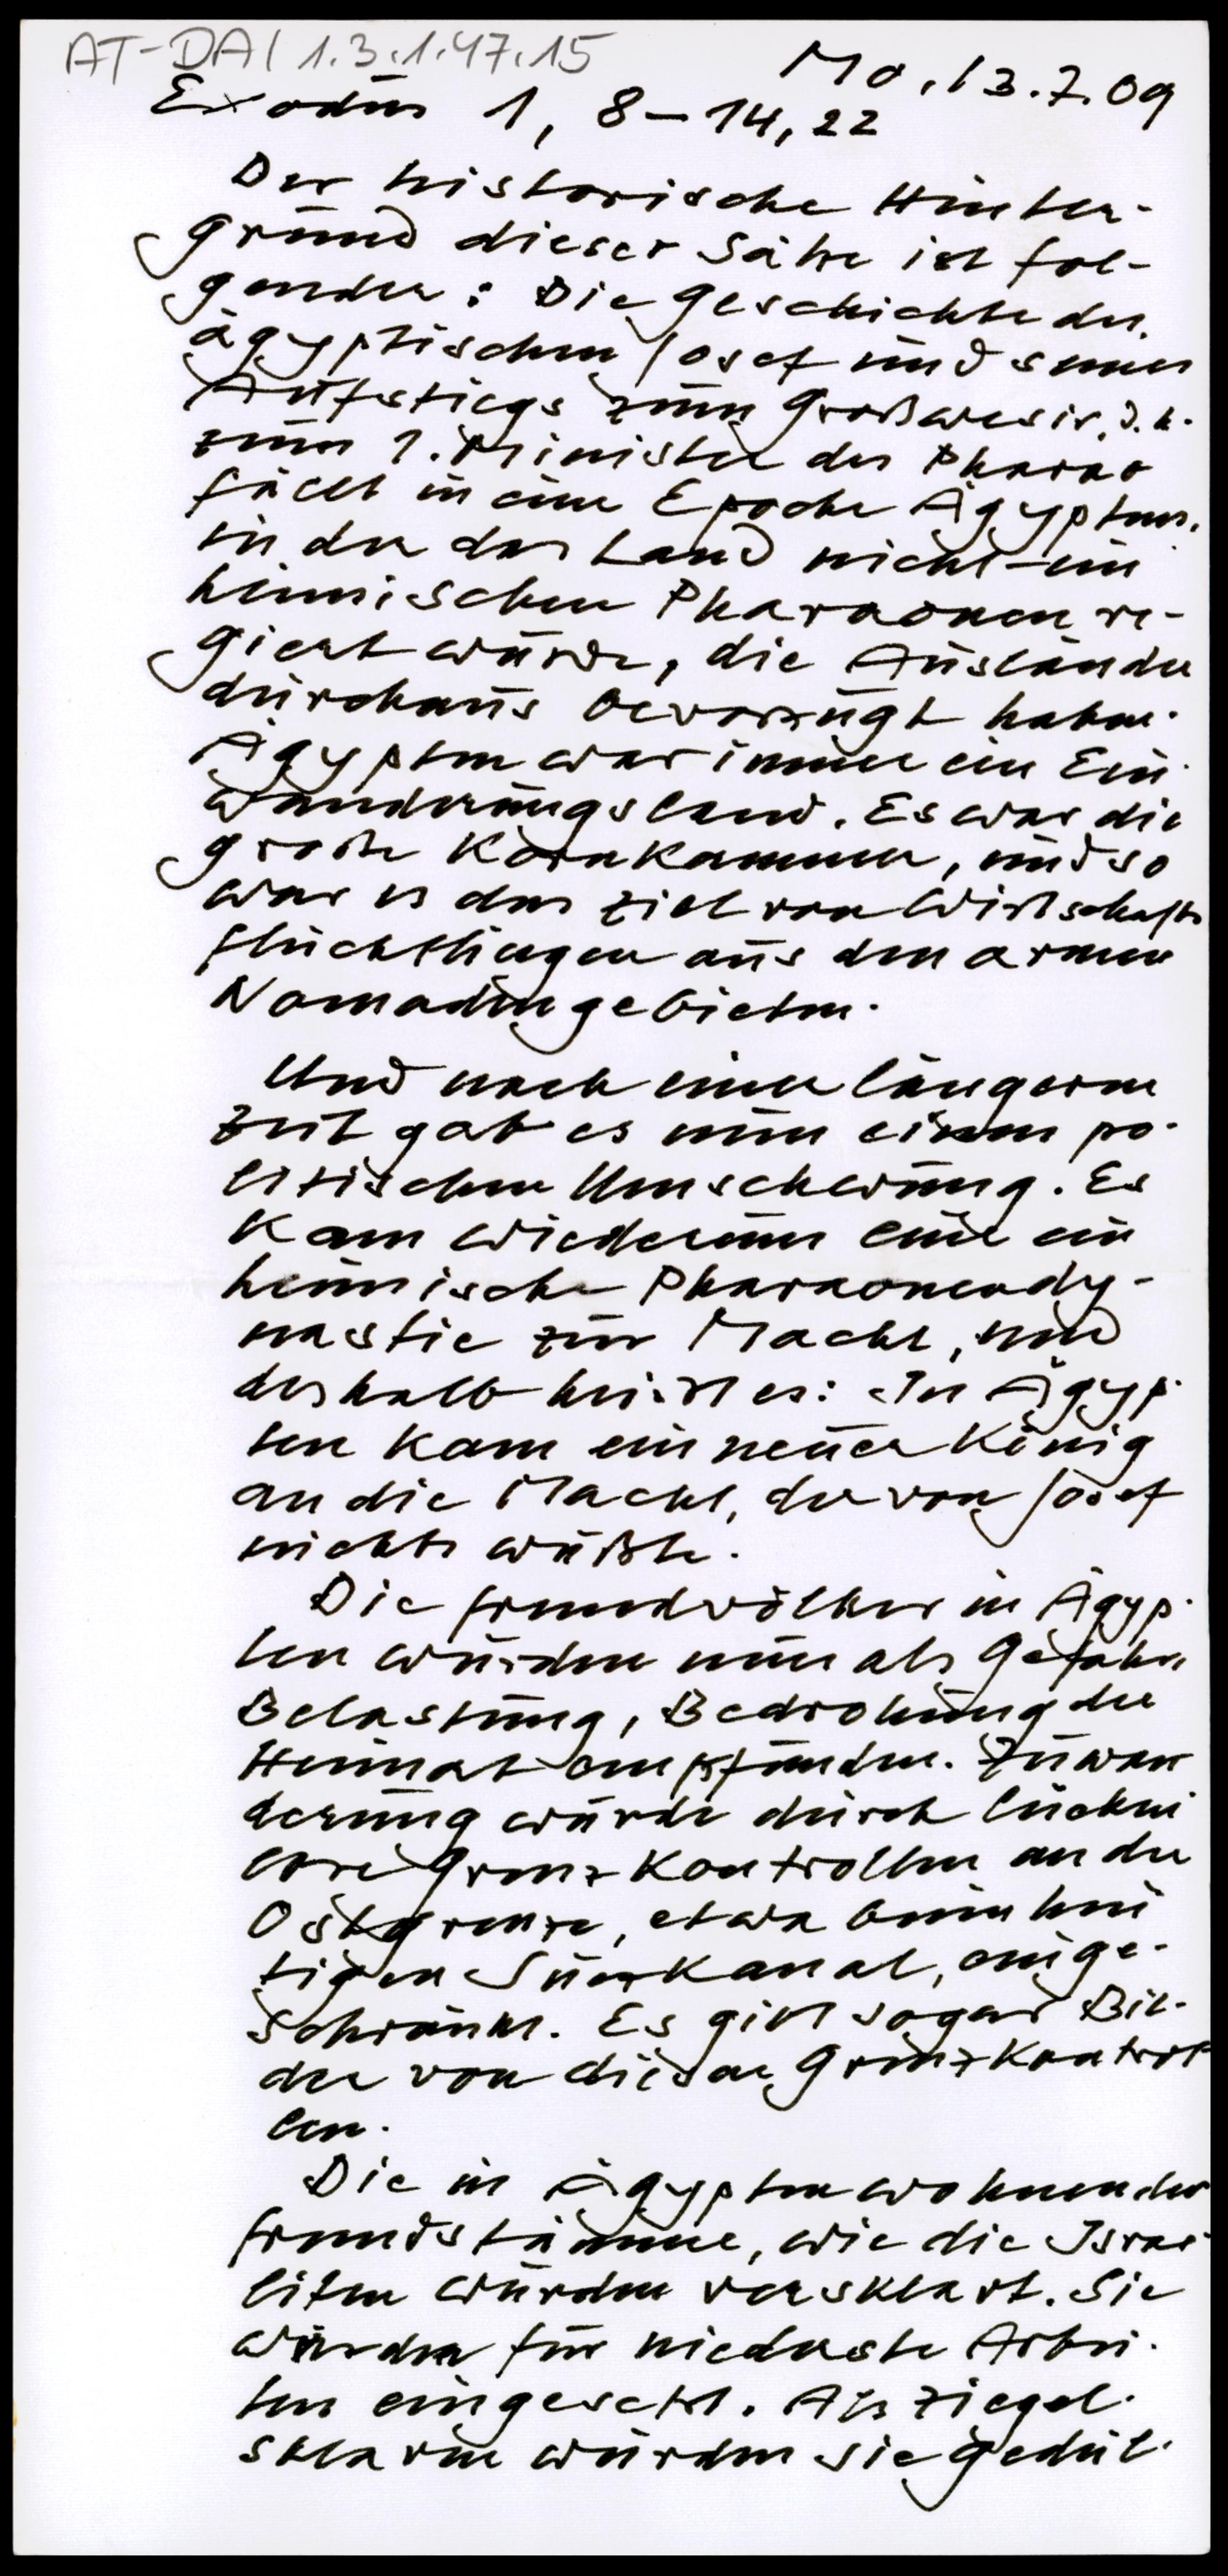 AT-DAI 1.3.1.47.15
Mo, 13.7.09
Exodus 1, 8-14, 22
Der historische Hinter-
grund dieser Sätze ist fol-
gender: Die Geschichte des
ägyptischen Josef und seines
Aufstiegs zum Großwesir, d.h.
zum 1. Minister des Pharao
fällt in eine Epoche Ägyptens,
in der das Land nicht-ein
heimischen Pharaonen re-
giert wurde, die Ausländer
durchaus bevorzugt haben.
Ägypten war immer ein Ein-
wanderungsland. Es war die
große Kornkammer, und so
war es das Ziel von Wirtschafts
flüchtlingen aus den armen
Nomadengebieten.
Und nach einer längeren
Zeit gab es nun einen po-
litischen Umschwung. Es
kam wiederum eine ein
heimische Pharaonendy-
nastie zur Macht, und
deshalb heißt es: In Ägyp-
ten kam ein neuer König
an die Macht, der von Josef
nichts wußte.
Die Fremdvölker in Ägyp-
ten wurden nun als Gefahr,
Belastung, Bedrohung der
Heimat empfunden. Zuwan
derung wurde durch lücken
lose Grenzkontrollen an der
Ostgrenze, etwa beim heu
tigen Suezkanal, einge-
schränkt. Es gibt sogar Bil-
der von diesen Grenzkontrol
len.
Die in Ägypten wohnenden
Fremdstämme, wie die Israe-
liten wurden versklavt. Sie
wurden für niederste Arbei-
ten eingesetzt. Als Ziegel-
sklaven wurden sie gedul-